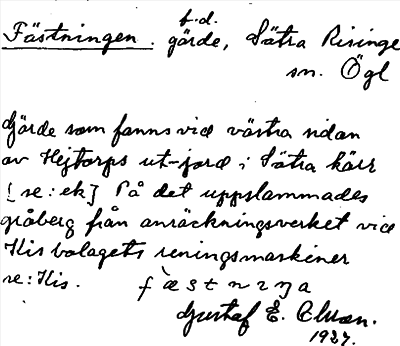 Fästningen. f.d. gärde, Sätra Risinge
sn. Ögl
Gärde som fanns vid västra sidan
av Hejtorps ut-jord i Sätra kärr
[se: ek] På det uppslammades
gråberg från anräckningsverket vid
His bolagets reningsmaskiner
se: His. fæstnɩŋa
Gustaf E.
1927.